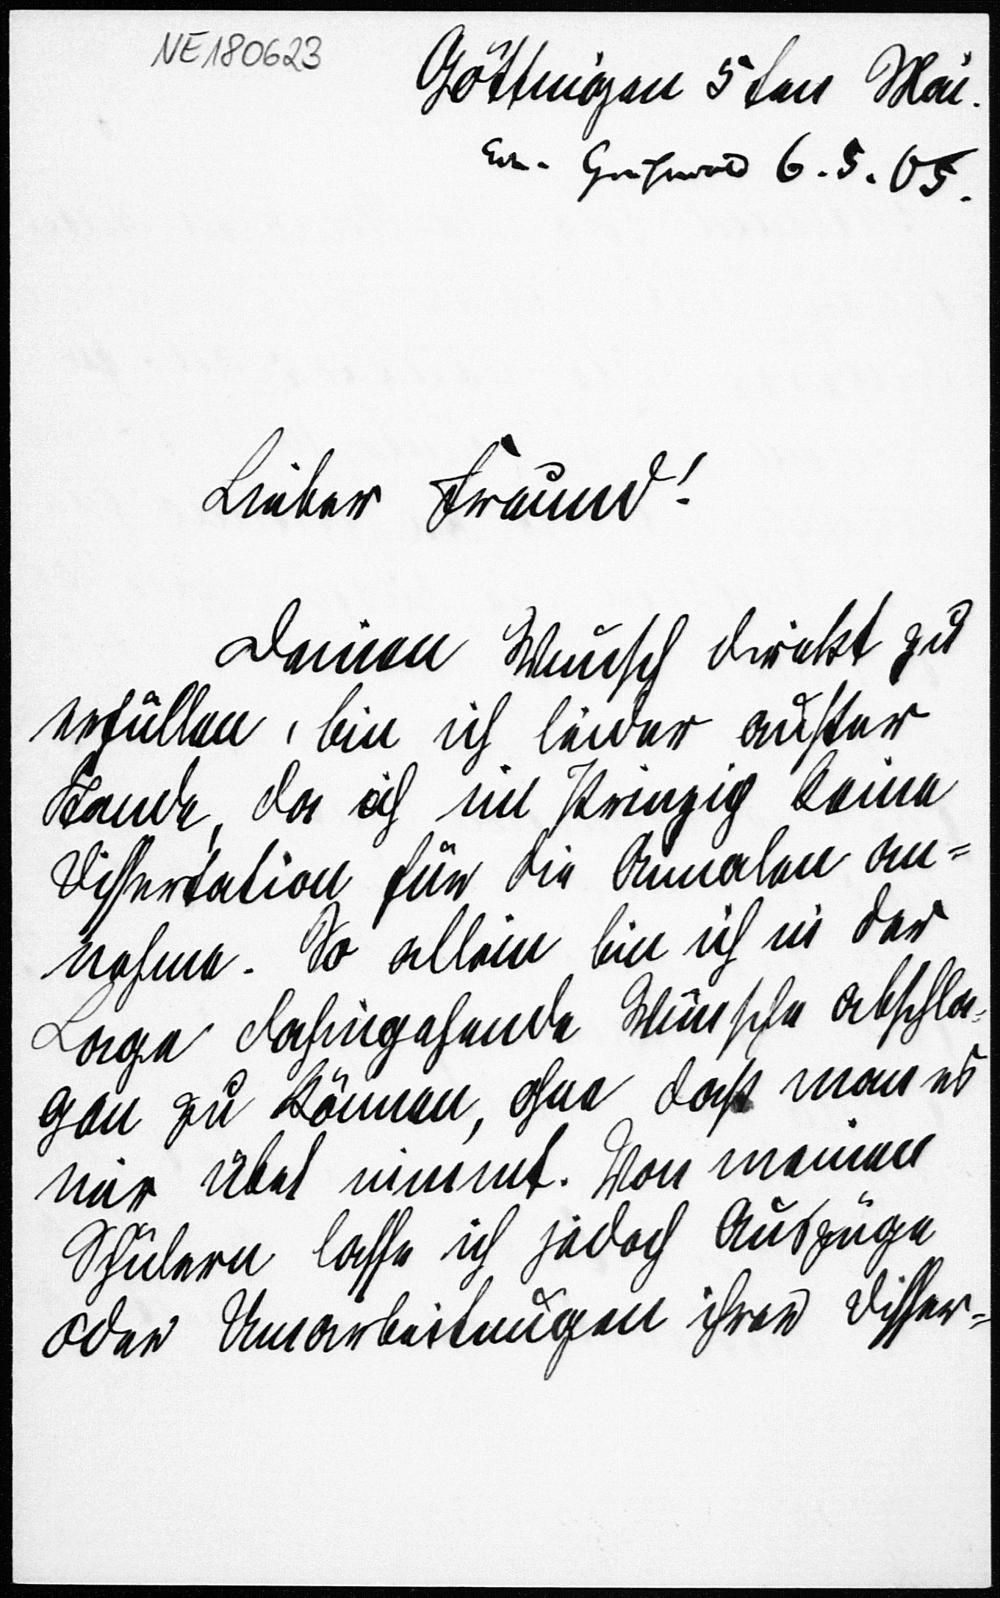 NE180623
Göttingen 5ten Mai.
Em. Greifswald 6.5.05.
Lieber Freund!
Deinen Wunsch direkt zu
erfüllen, bin ich leider außer
Stande, da ich im Prinzip keine
Dissertation für die Annalen an=
nehme. So allein bin ich in der
Lage dahingehende Wünsche abschla=
gen zu können, ohne daß man es
mir übel nimmt. Von meinen
Schülern lasse ich jedoch Auszüge
oder Umarbeitungen ihrer Disser=